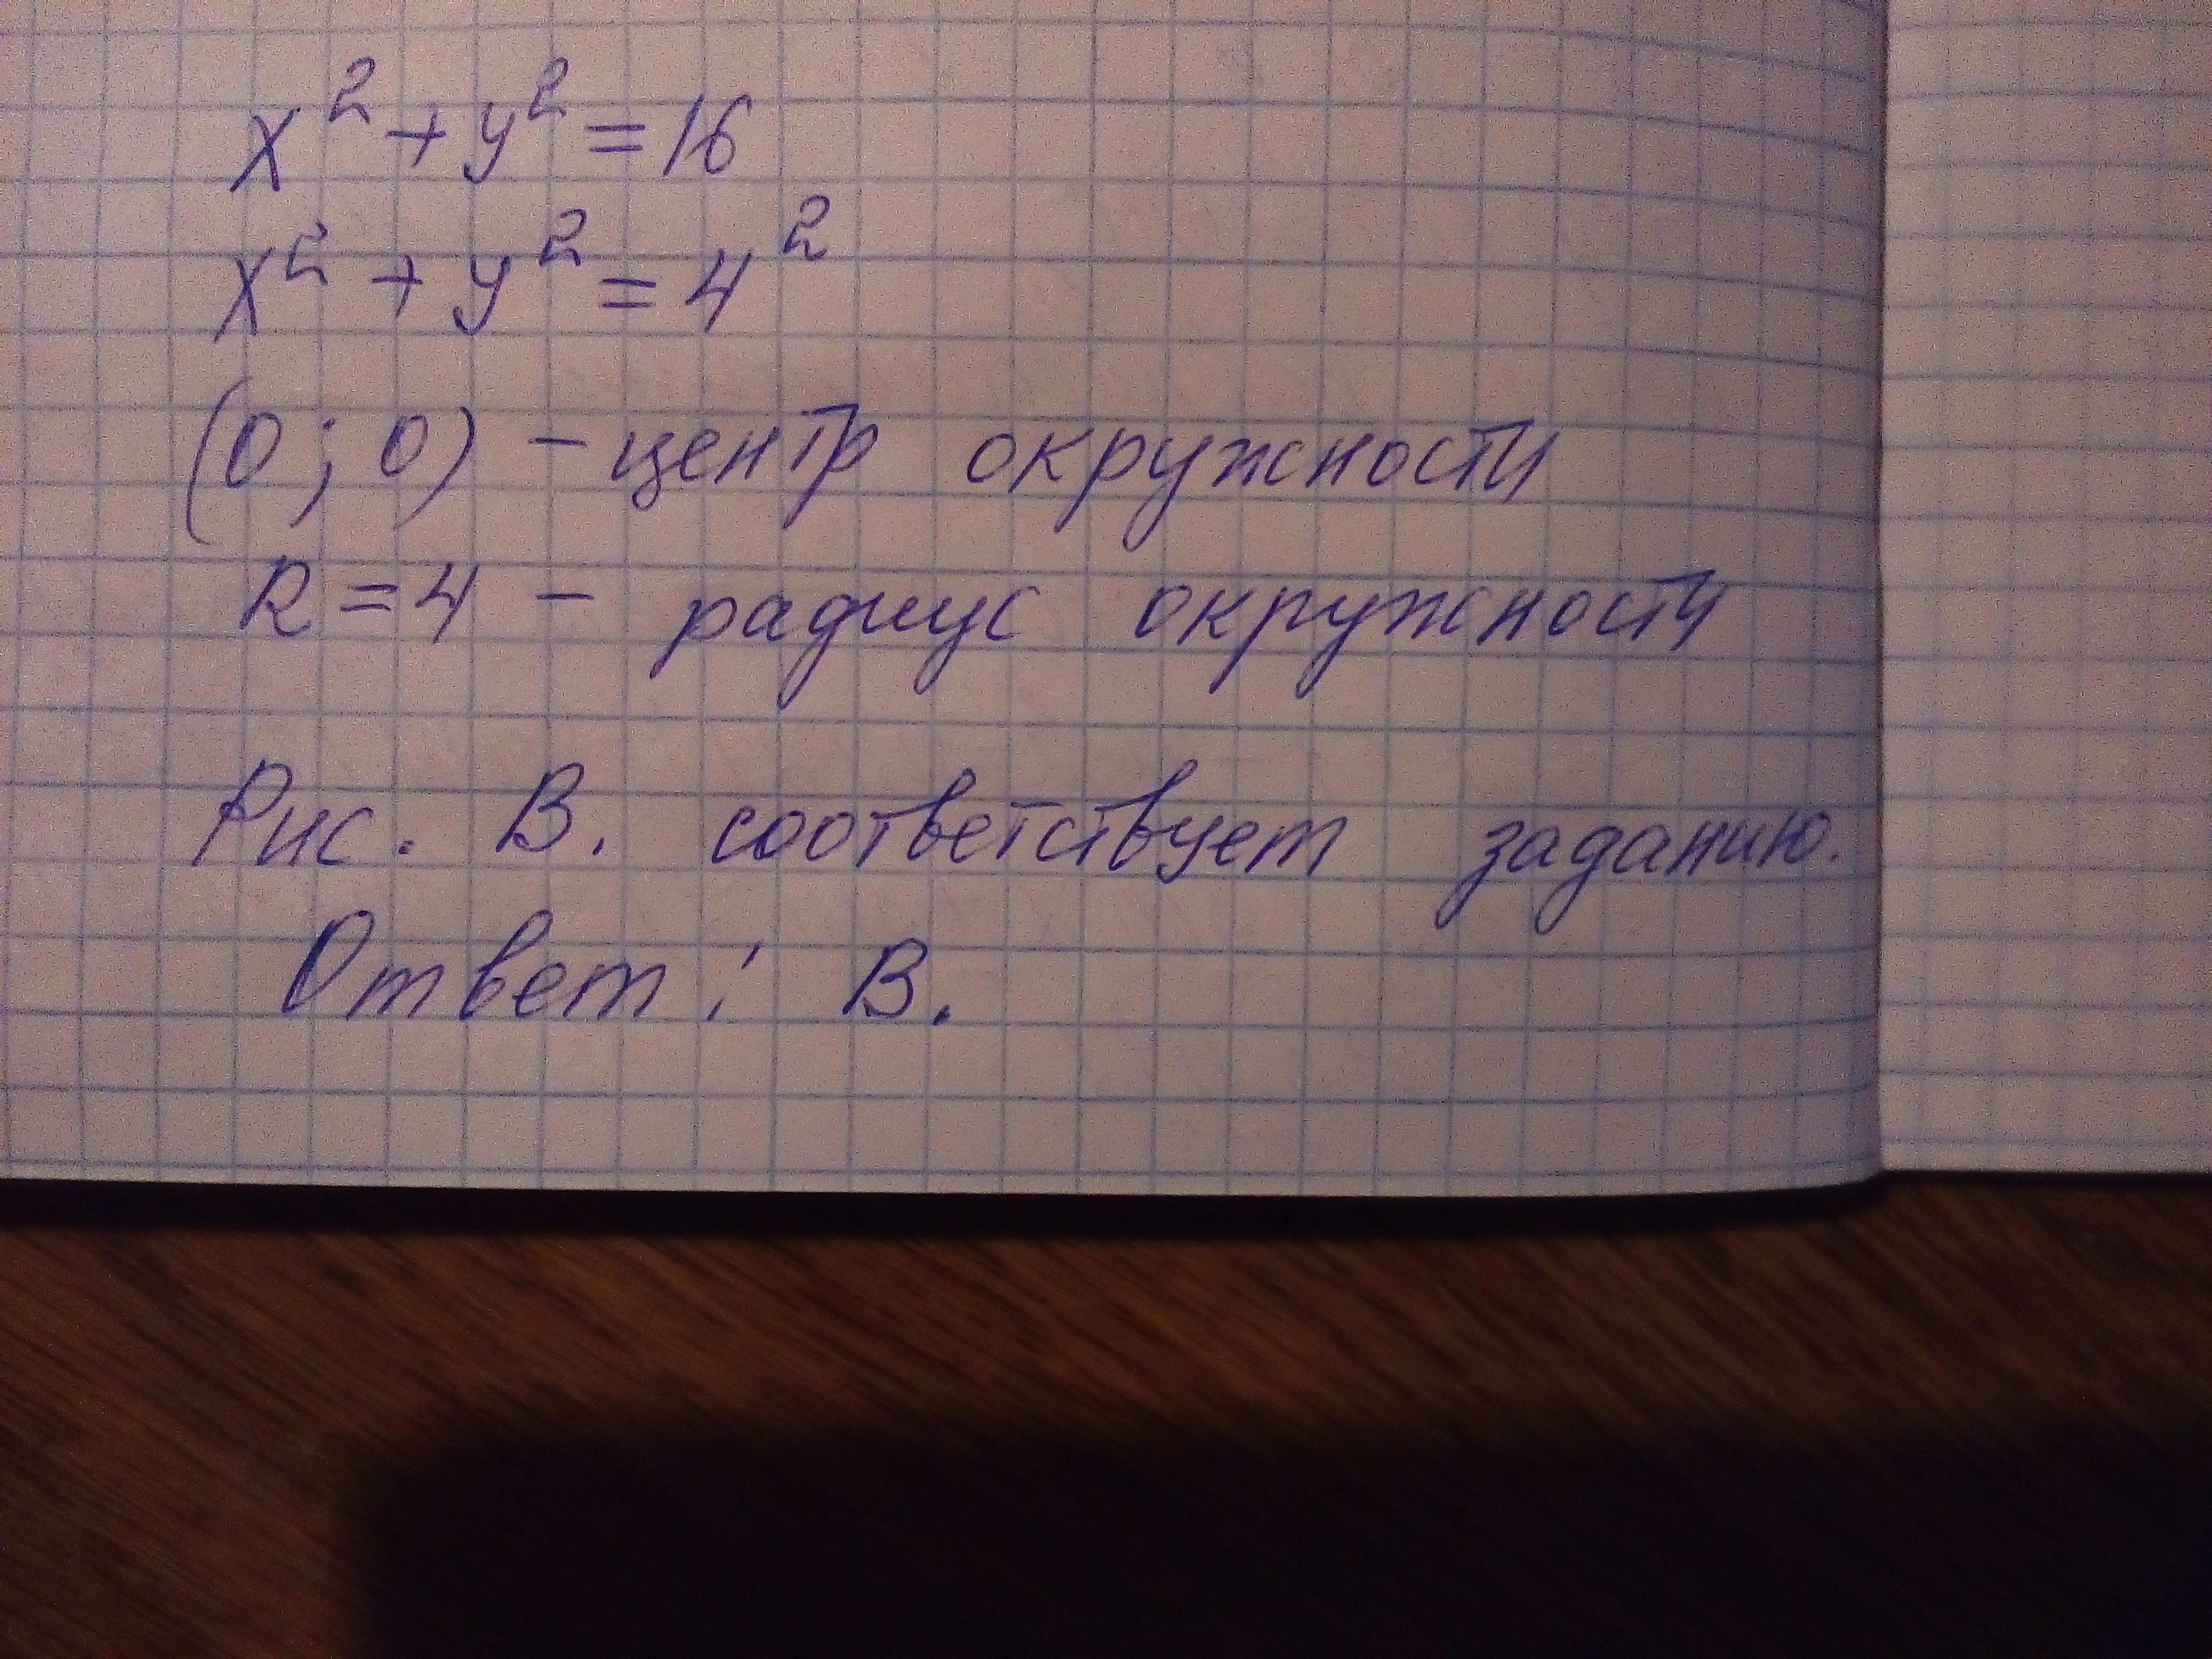 x² + y² = 16
x² + y² = 4²
(0; 0) – центр окружности
R = 4 – радиус окружности
Рис. В. соответствует заданию.
Ответ: В.